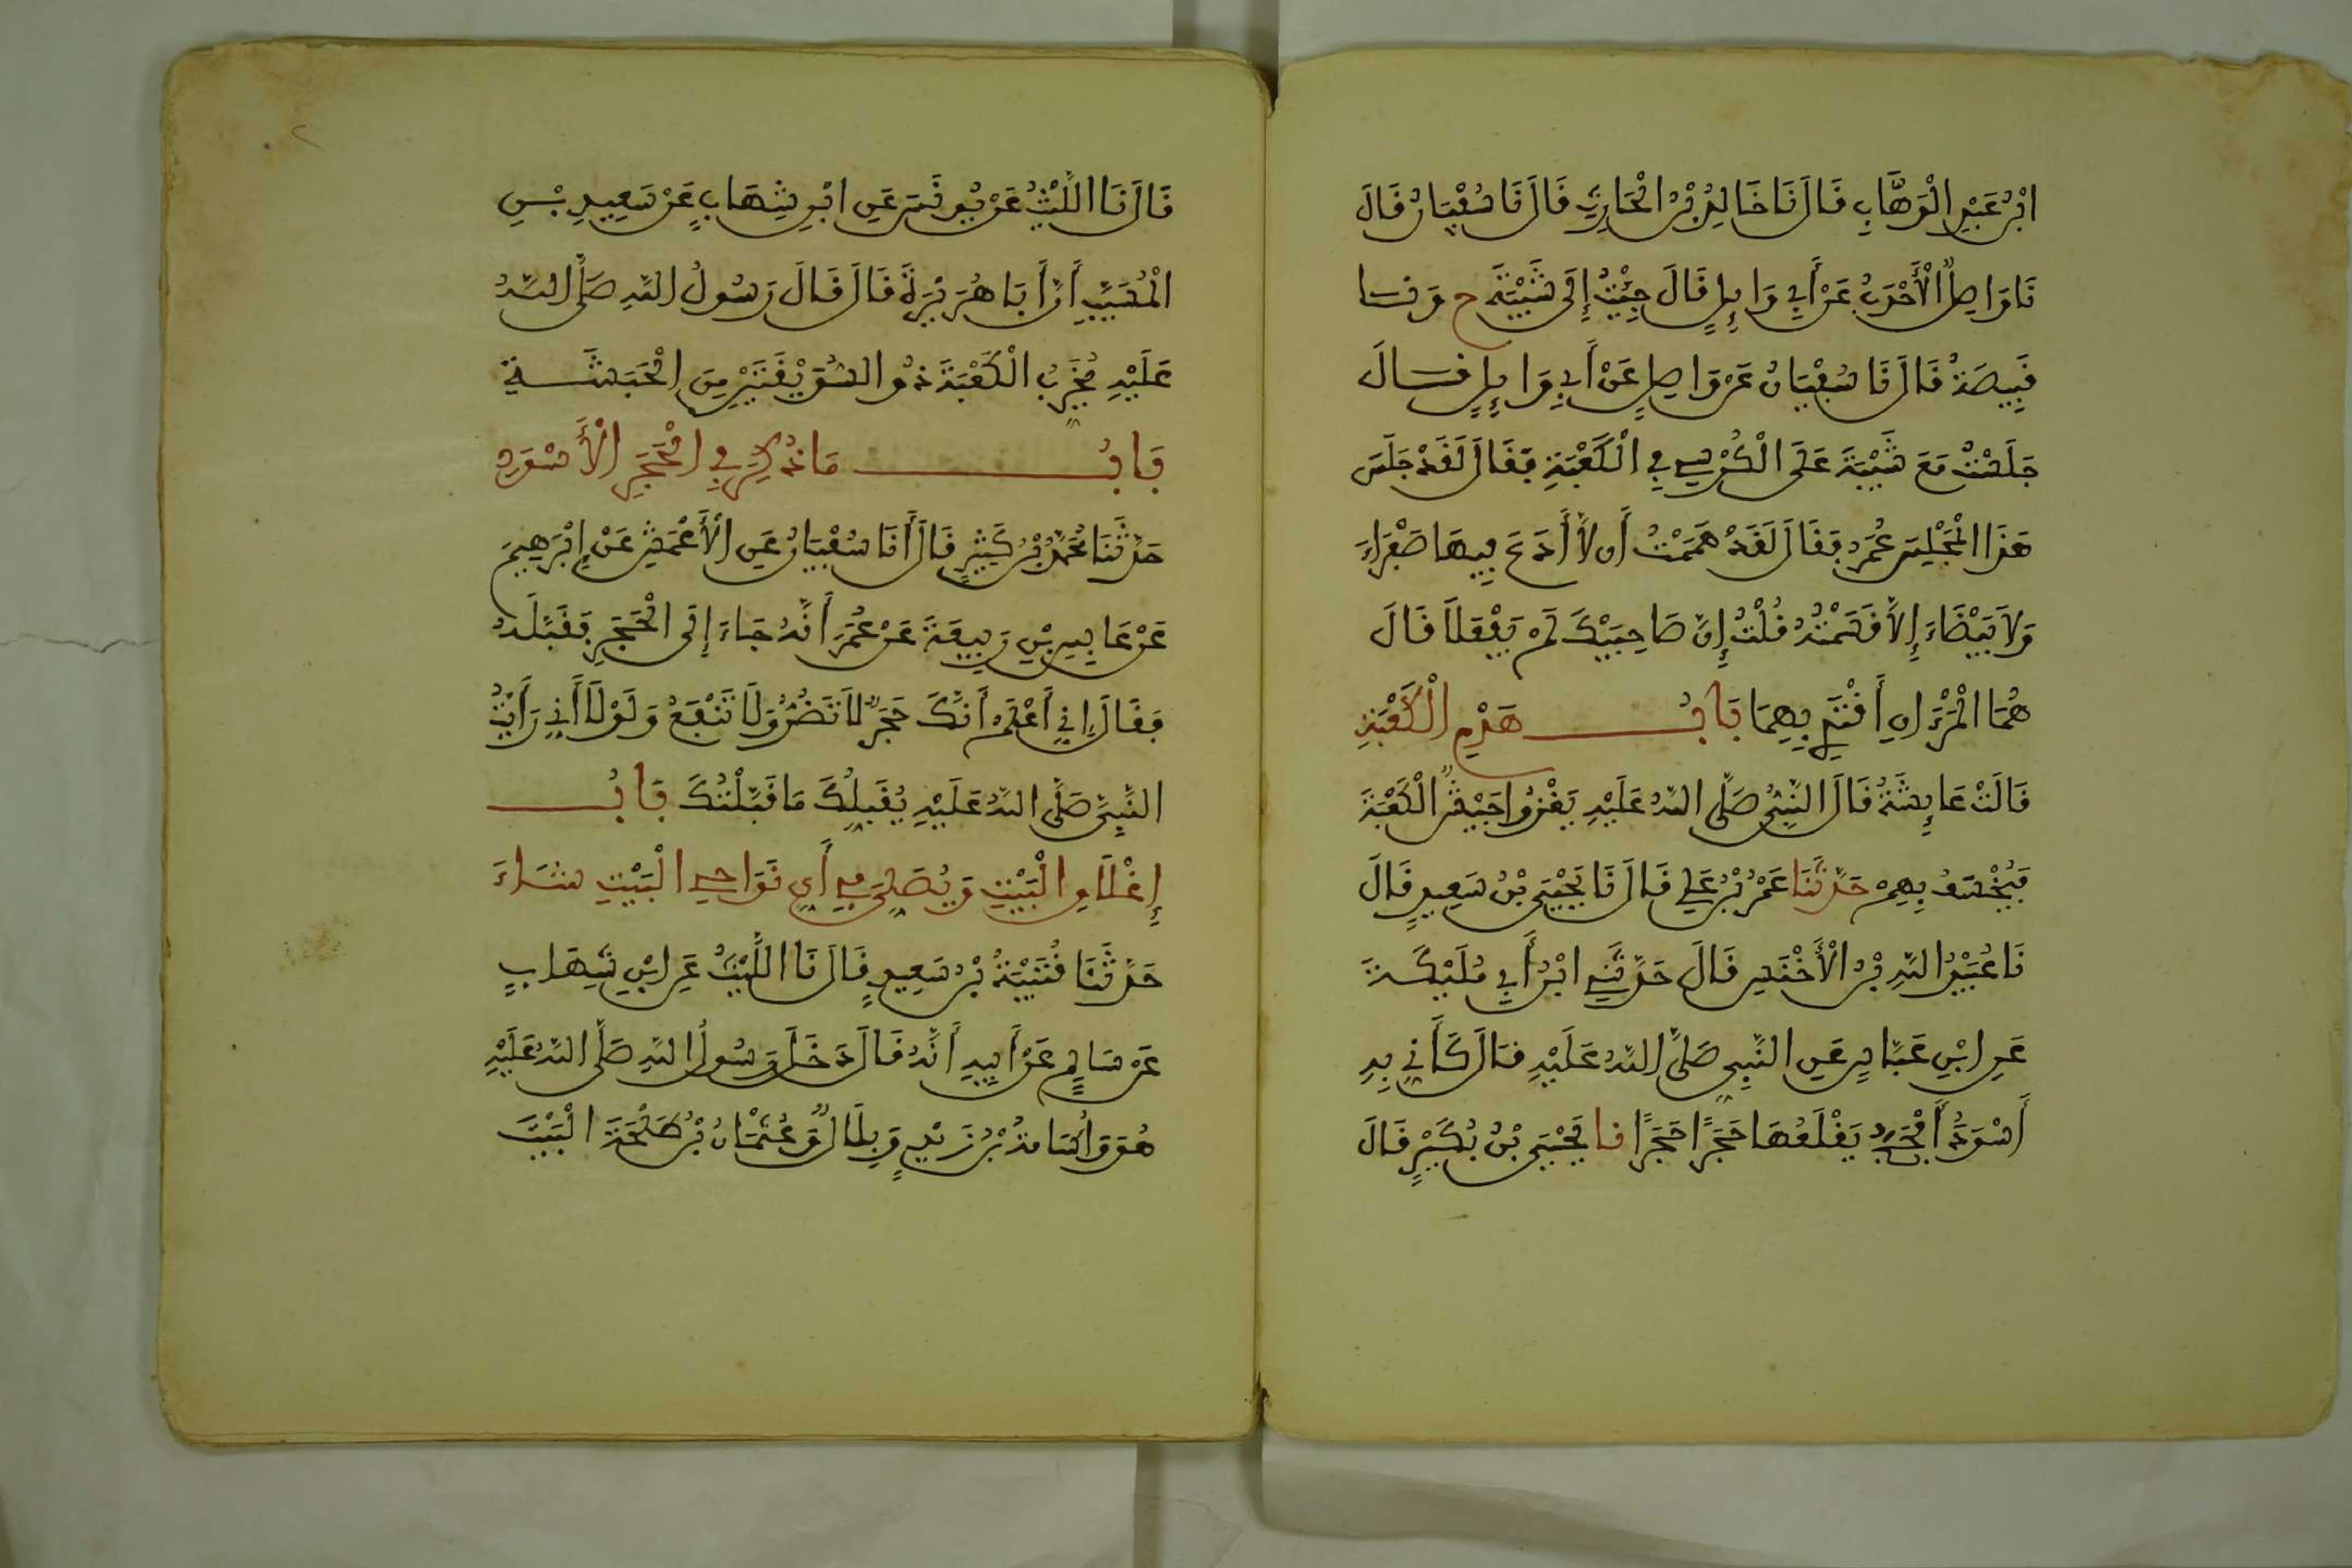 ابْنُ عَبْدِ الْوَهَّابِ قَالَ نَا خَالِدُ بْنُ الْحَارِثِ قَالَ نَا سُفْيَانُ قَالَ
نَا وَاصِلٌ الْأَحْدَبُ عَنْ أَبِي وَائِلٍ قَالَ جِئْتُ إِلَى شَيْبَةَ ح وَنا
قَبِيصَةُ قَالَ نَا سُفْيَانُ عَنْ وَاصِلٍ عَنْ أَبِي وَائِلٍ قَالَ
جَلَسْتُ مَعَ شَيْبَةَ عَلَى الْكُرْسِيِّ فِي الْكَعْبَةِ فَقَالَ لَقَدْ جَلَسَ
هَذَا الْمَجْلِسَ عُمَرُ فَقَالَ لَقَدْ هَمَمْتُ أَن لاَّ أَدَعَ فِيهَا صَفْرَاءَ
وَلاَ بَيْضَاءَ إِلاَّ قَسَمْتُهُ قُلْتُ إِنَّ صَاحِبَيْكَ لَمْ يَفْعَلاَ قَالَ
هُمَا الْمَرْءَانِ أَقْتَدِي بِهِمَا بَابُ هَدْمِ الْكَعْبَةِ
قَالَتْ عَائِشَةُ قَالَ النَّبِيُّ صَلَّى اللَّهُ عَلَيْهِ يَغْزُوا جَيْشٌ الْكَعْبَةَ
فَيُخْسَفُ بِهِمْ حَدَّثَنَا عَمْرُو بْنُ عَلِيٍّ قَالَ نَا يَحْيَى بْنُ سَعِيدٍ قَالَ
نَا عُبَيْدُ اللَّهِ بْنُ الْأَخْنَسِ قَالَ حَدَّثَنِي ابْنُ أَبِي مُلَيْكَةَ
عَنِ ابْنِ عَبَّاسٍ عَنِ النَّبِيِّ صَلَّى اللَّهُ عَلَيْهِ قَالَ كَأَنِّي بِهِ
أَسْوَدُ أَفْحَجُ يَقْلَعُهَا حَجَرًا حَجَرًا نا يَحْيَى بْنُ بُكَيْرٍ قَالَ
قَالَ نَا اللَّيْثُ عَنْ يُونُسَ عَنِ ابْنِ شِهَابٍ عَنْ سَعِيدِ بْنِ
الْمُسَيِّبِ أَنَّ أَبَا هُرَيْرَةَ قَالَ قَالَ رَسُولُ اللَّهِ صَلَّى اللَّهُ
عَلَيْهِ يُخَرِّبُ الْكَعْبَةَ ذُو السُّوَيْقَتَيْنِ مِنَ الْحَبَشَةِ
بَابُ مَا ذُكِرَ فِي الْحَجَرِ الْأَسْوَدِ
حَدَّثَنَا مُحَمَّدُ بْنُ كَثِيرٍ قَالَ أَنَا سُفْيَانُ عَنِ الْأَعْمَشِ عَنْ إِبْرَهِيمَ
عَنْ عَابِسِ بْنِ رَبِيعَةَ عَنْ عُمَرَ أَنَّهُ جَاءَ إِلَى الْحَجَرِ فَقَبَّلَهُ
فَقَالَ إِنِّي أَعْلَمُ أَنَّكَ حَجَرٌ لاَ تَضُرُّ وَلَا تَنْفَعُ وَلَوْلَا أَنِّي رَأَيْتُ
النَّبِيَّ صَلَّى اللَّهُ عَلَيْهِ يُقَبِّلُكَ مَا قَبَّلْتُكَ بَابُ
إِغْلَاقِ الْبَيْتِ وَيُصَلِّي فِي أَيِّ نَوَاحِي الْبَيْتِ شَاءَ
حَدَّثَنَا قُتَيْبَةُ بْنُ سَعِيدٍ قَالَ نَا اللَّيْثُ عَنِ ابْنِ شِهَابٍ
عَنْ سَالِمٍ عَنْ أَبِيهِ أَنَّهُ قَالَ دَخَلَ رَسُولُ اللَّهِ صَلَّى اللَّهُ عَلَيْهِ
هُوَ وَأُسَامَةُ بْنُ زَيْدٍ وَبِلَالٌ وَعُثْمَانُ بْنُ طَلْحَةَ الْبَيْتَ